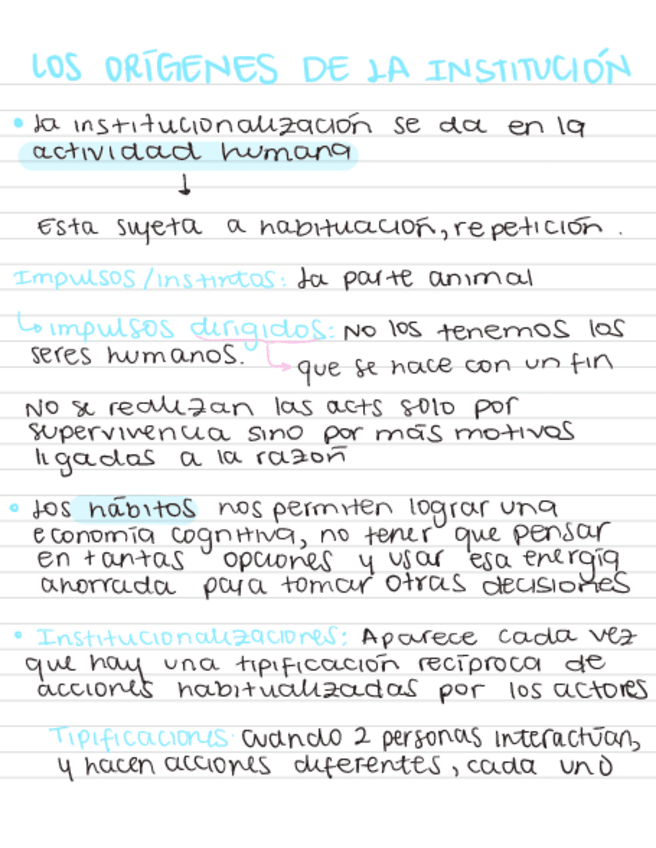 LOS ORÍGENES DE LA INSTITUCIÓN
• La institucionalización se da en la
actividad humana
↓
Esta sujeta a habituación, repetición.
Impulsos/instintos: La parte animal
↳ impulsos dirigidos: No los tenemos los
seres humanos. → que se hace con un fin
No se realizan las acts solo por
supervivencia sino por más motivos
ligados a la razón
• Los hábitos nos permiten lograr una
economía cognitiva, no tener que pensar
en tantas opciones y usar esa energía
ahorrada para tomar otras decisiones
• Institucionalizaciones: Aparece cada vez
que hay una tipificación recíproca de
acciones habitualizadas por los actores
Tipificaciones: Cuando 2 personas interactúan,
y hacen acciones diferentes, cada uno